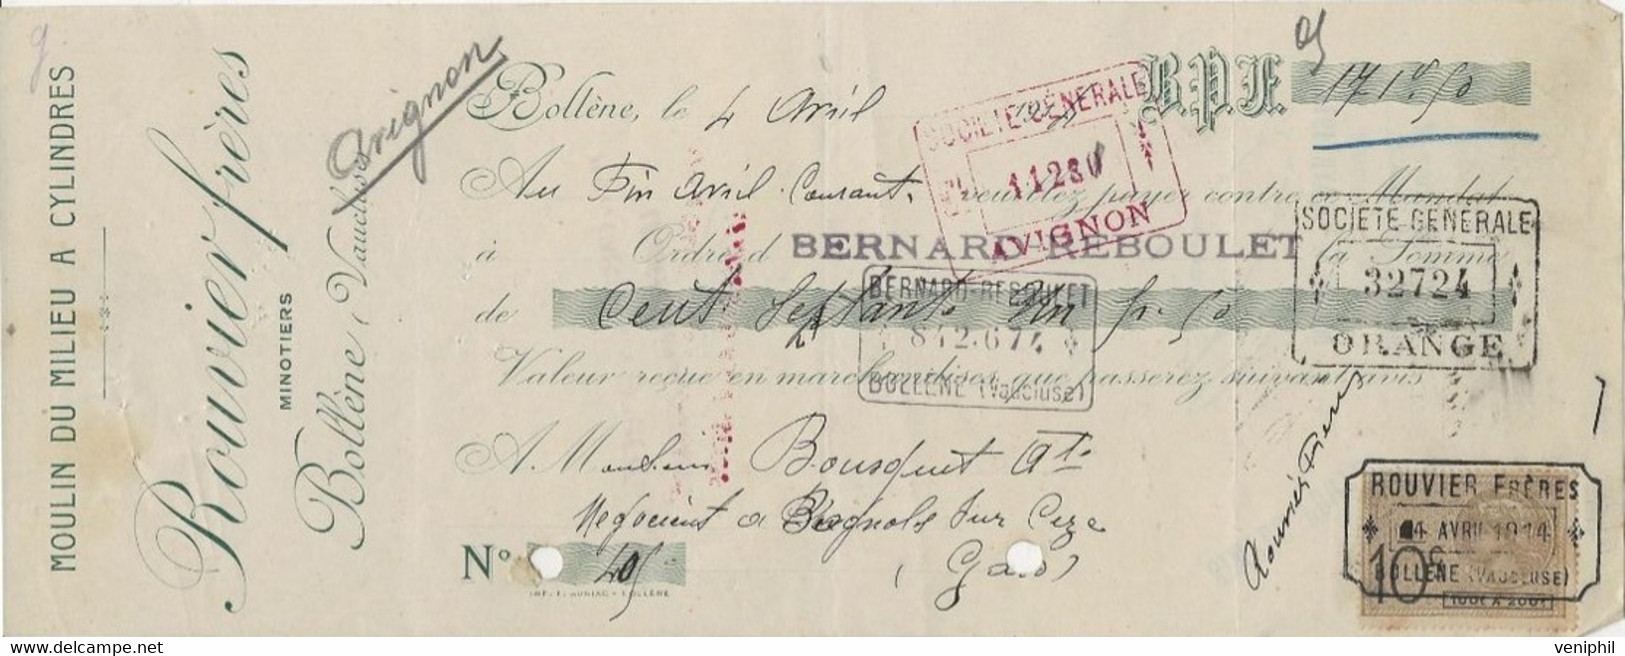 MOULIN DU MILIEU A CYLINDRES
Rouvier frères
MINOTIERS
Bollène (Vaucluse)
Avignon
Bollène, le 4 Avril
B.P.F. 171f.50
SOCIETE GENERALE
11280
AVIGNON
Au Fin Avril Courant, veuillez payer contre ce Mandat
à Ordre d BERNARD REBOULET la Somme
de Cent Septante Un fr. 50
Valeur reçue en marchandises que passerez suivant avis
SOCIETE GENERALE
32724
ORANGE
BERNARD-REBOULET
842674
BOLLÈNE (Vaucluse)
A Monsieur Bousquet
Negocient a Bagnols Sur Ceze
(Gard)
No 405
Rouvier Freres
ROUVIER FRÈRES
4 AVRIL 1914
BOLLÈNE (VAUCLUSE)
10c
100f A 200f
veniphil